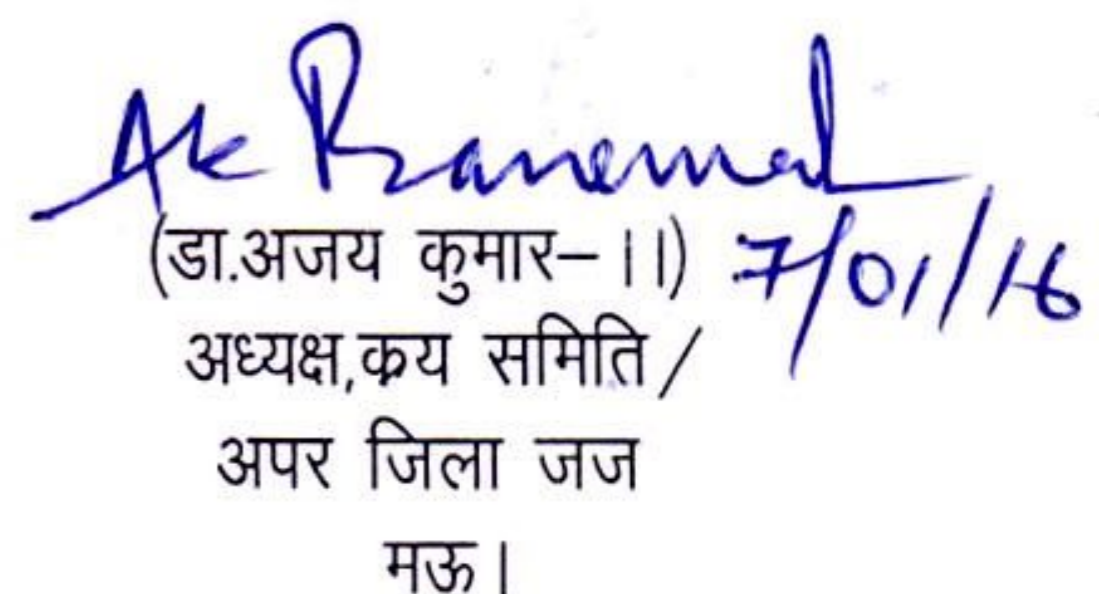 Ak
(डा.अजय कुमार–।।) 7/01/16
अध्यक्ष,क्रय समिति/
अपर जिला जज
मऊ।